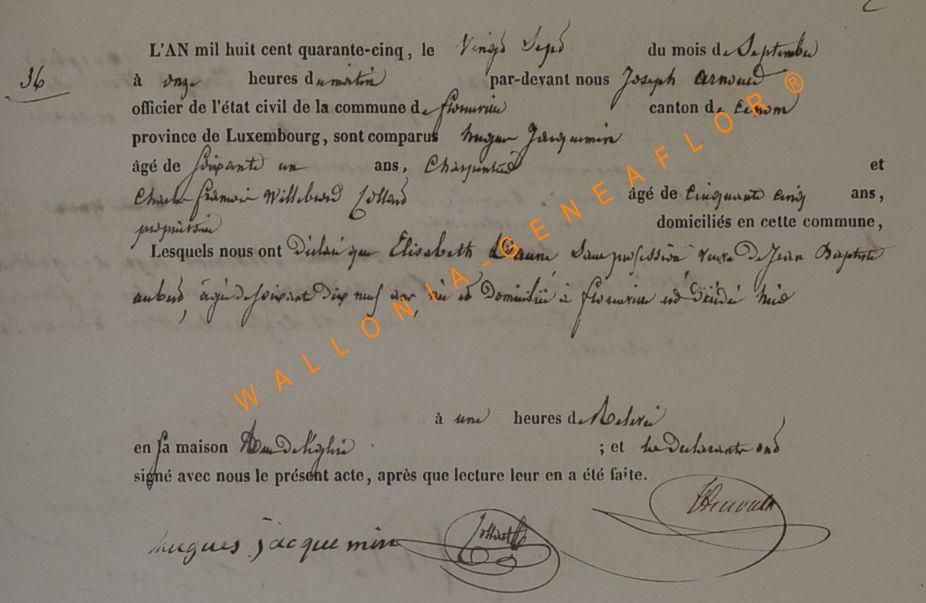 36
L'AN mil huit cent quarante-cinq, le Vingt Sept du mois de Septembre
à onze heures du matin par-devant nous Joseph Arnould
officier de l'état civil de la commune de florenville canton de
province de Luxembourg, sont comparus hugue Jacquemin
âgé de soixante un ans, Charpentier et
Charles françois Willebrord Collard âgé de Cinquante Cinq ans,
propriétaire domiciliés en cette commune,
Lesquels nous ont Déclaré que Elisabeth sans profession veuve de Jean Baptiste
aubert, agée de soixante Dix neuf ans, née et Domiciliée à florenville est décédée hier
à une heures de Relevée
en sa maison Rue de l'église ; et les Déclarants ont
signé avec nous le présent acte, après que lecture leur en a été faite.
hugues jacquemin Collard Arnould
WALLONIA-GENEAFLOR®